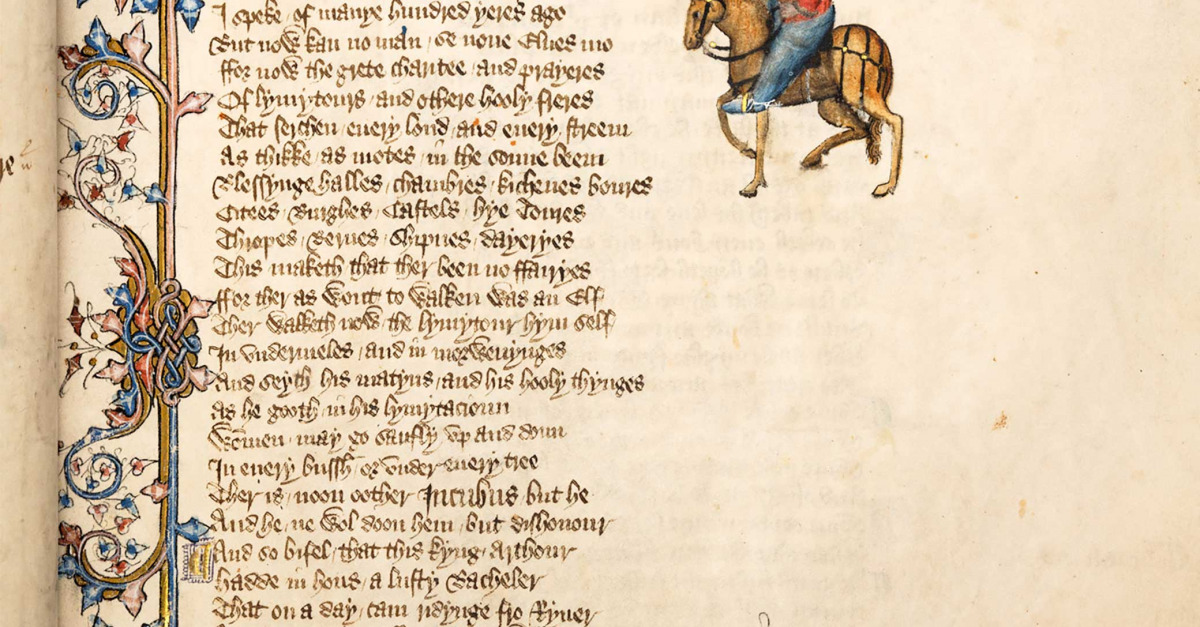 I speke of manye hundred yeres ago
But now kan no man se none Elues mo
ffor now the grete charitee and prayeres
Of lymytours and othere hooly freres
That serchen euery lond and euery streem
As thikke as motes in the sonne beem
Blessynge halles chambres kichenes boures
Citees Burghes Castels hye Toures
Thropes Bernes Shipnes dayeryes
This maketh that ther been no ffairyes
ffor ther as wont to walken was an Elf
Ther walketh now the lymytour hym self
In vndermeles and in morwenynges
And seyth his matyns and his hooly thynges
As he gooth in his lymytacioun
Wommen may go saufly vp and doun
In euery bussh or vnder euery tree
Ther is noon oother Incubus but he
And he ne wol doon hem but dishonour
And so bifel that this kyng Arthour
hadde in hous a lusty Bacheler
That on a day cam ridynge fro Ryuer